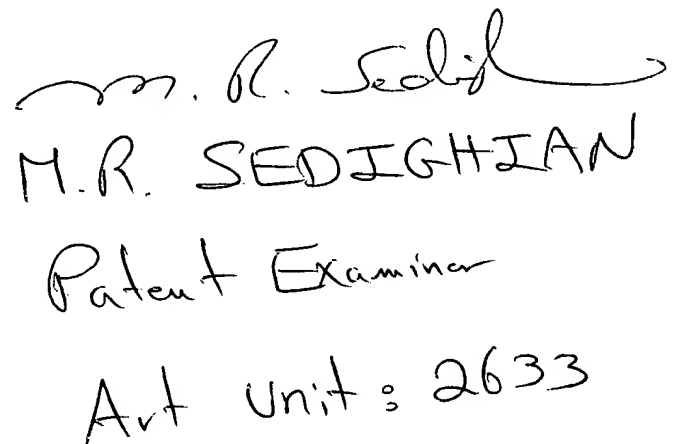 M. R. Sedigh
M.R. SEDIGHIAN
Patent Examiner
Art Unit: 2633